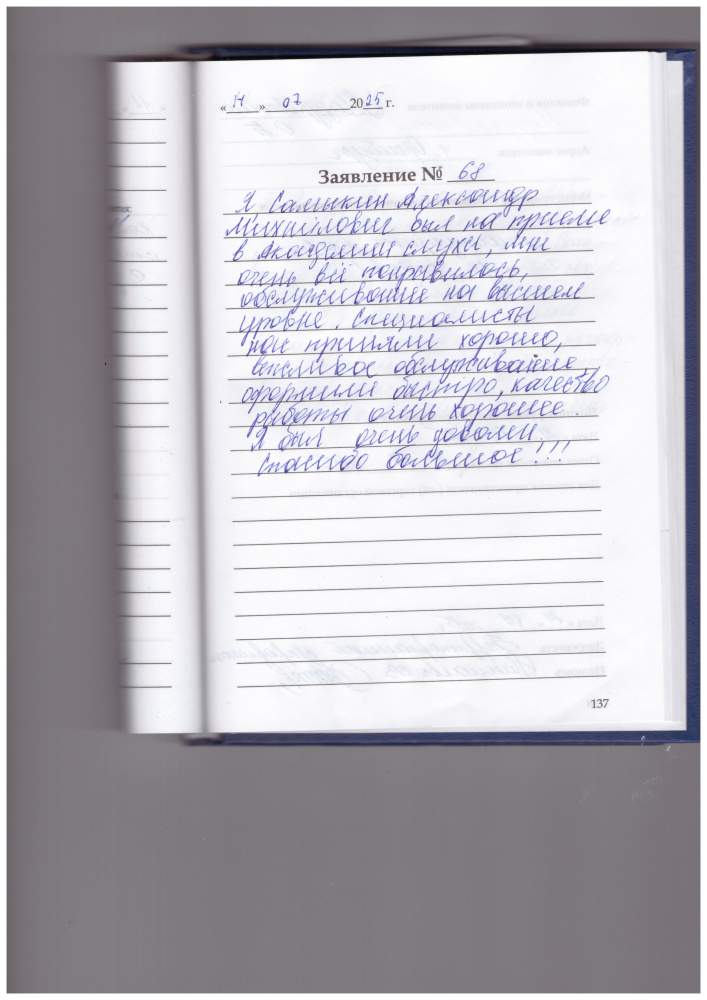 « 14 » 07 2025 г.
Заявление № 68
Я Самыкин Александр
Михайлович был на приеме
в Академии слуха, мне
очень всё понравилось,
обслуживание на высшем
уровне. Специалисты
нас приняли хорошо,
вежливое обслуживание,
оформили быстро, качество
работы очень хорошее.
Я был очень доволен.
Спасибо большое!!!
137